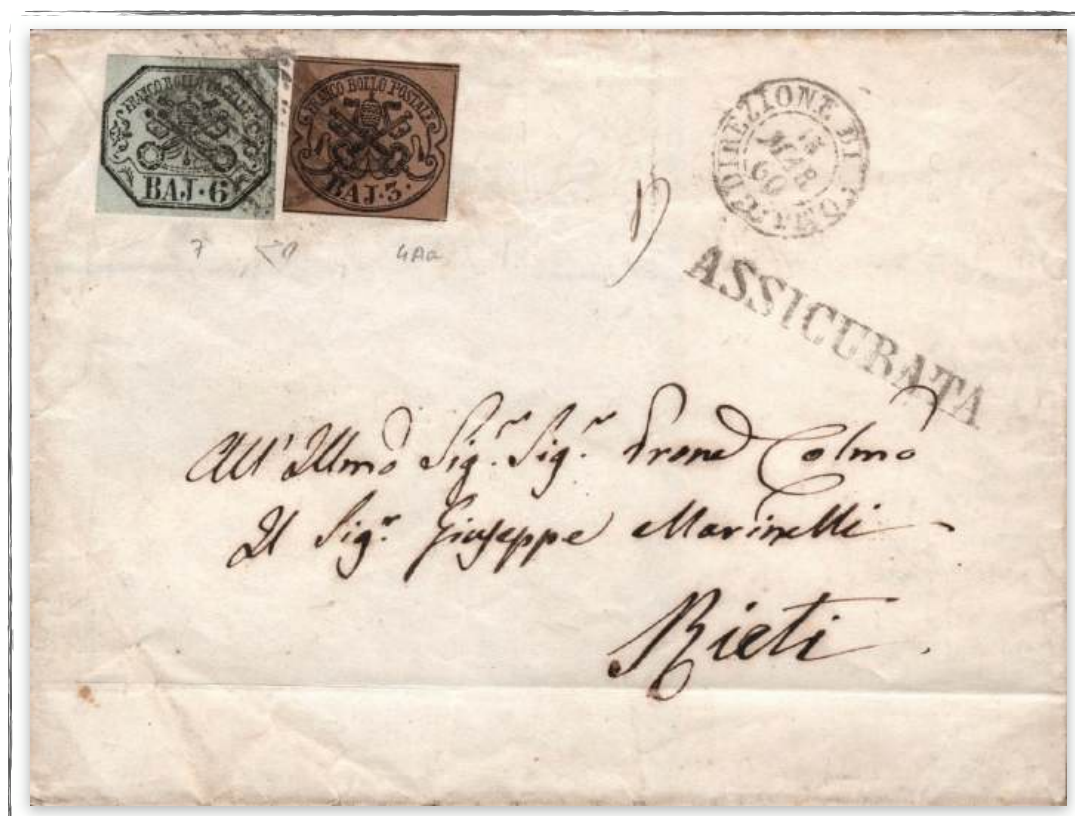 FRANCO BOLLO POSTALE
BAJ·6
FRANCO BOLLO POSTALE
BAJ·3·
7
4Aa
DIREZIONE DI ROMA
15
MAR
60
ASSICURATA
All' Illmo Sig.r Sig.r Prone Colmo
Il Sig.r Giuseppe Marinelli
Rieti.